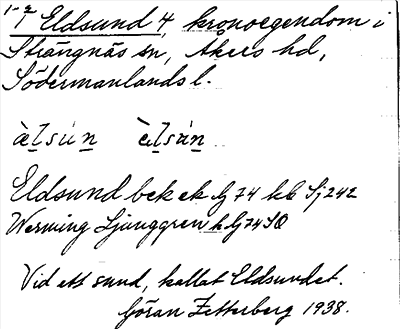 1-2
1 Eldsund 4, kronoegendom i
Strängnäs sn, Åkers hd,
Södermanlands l.
Eldsund bek ek Lj 74 kb Sj 242
Werming Ljunggren k Lj 74 SÖ
Vid ett sund, kallat Eldsundet.
Göran Zetterberg 1938.